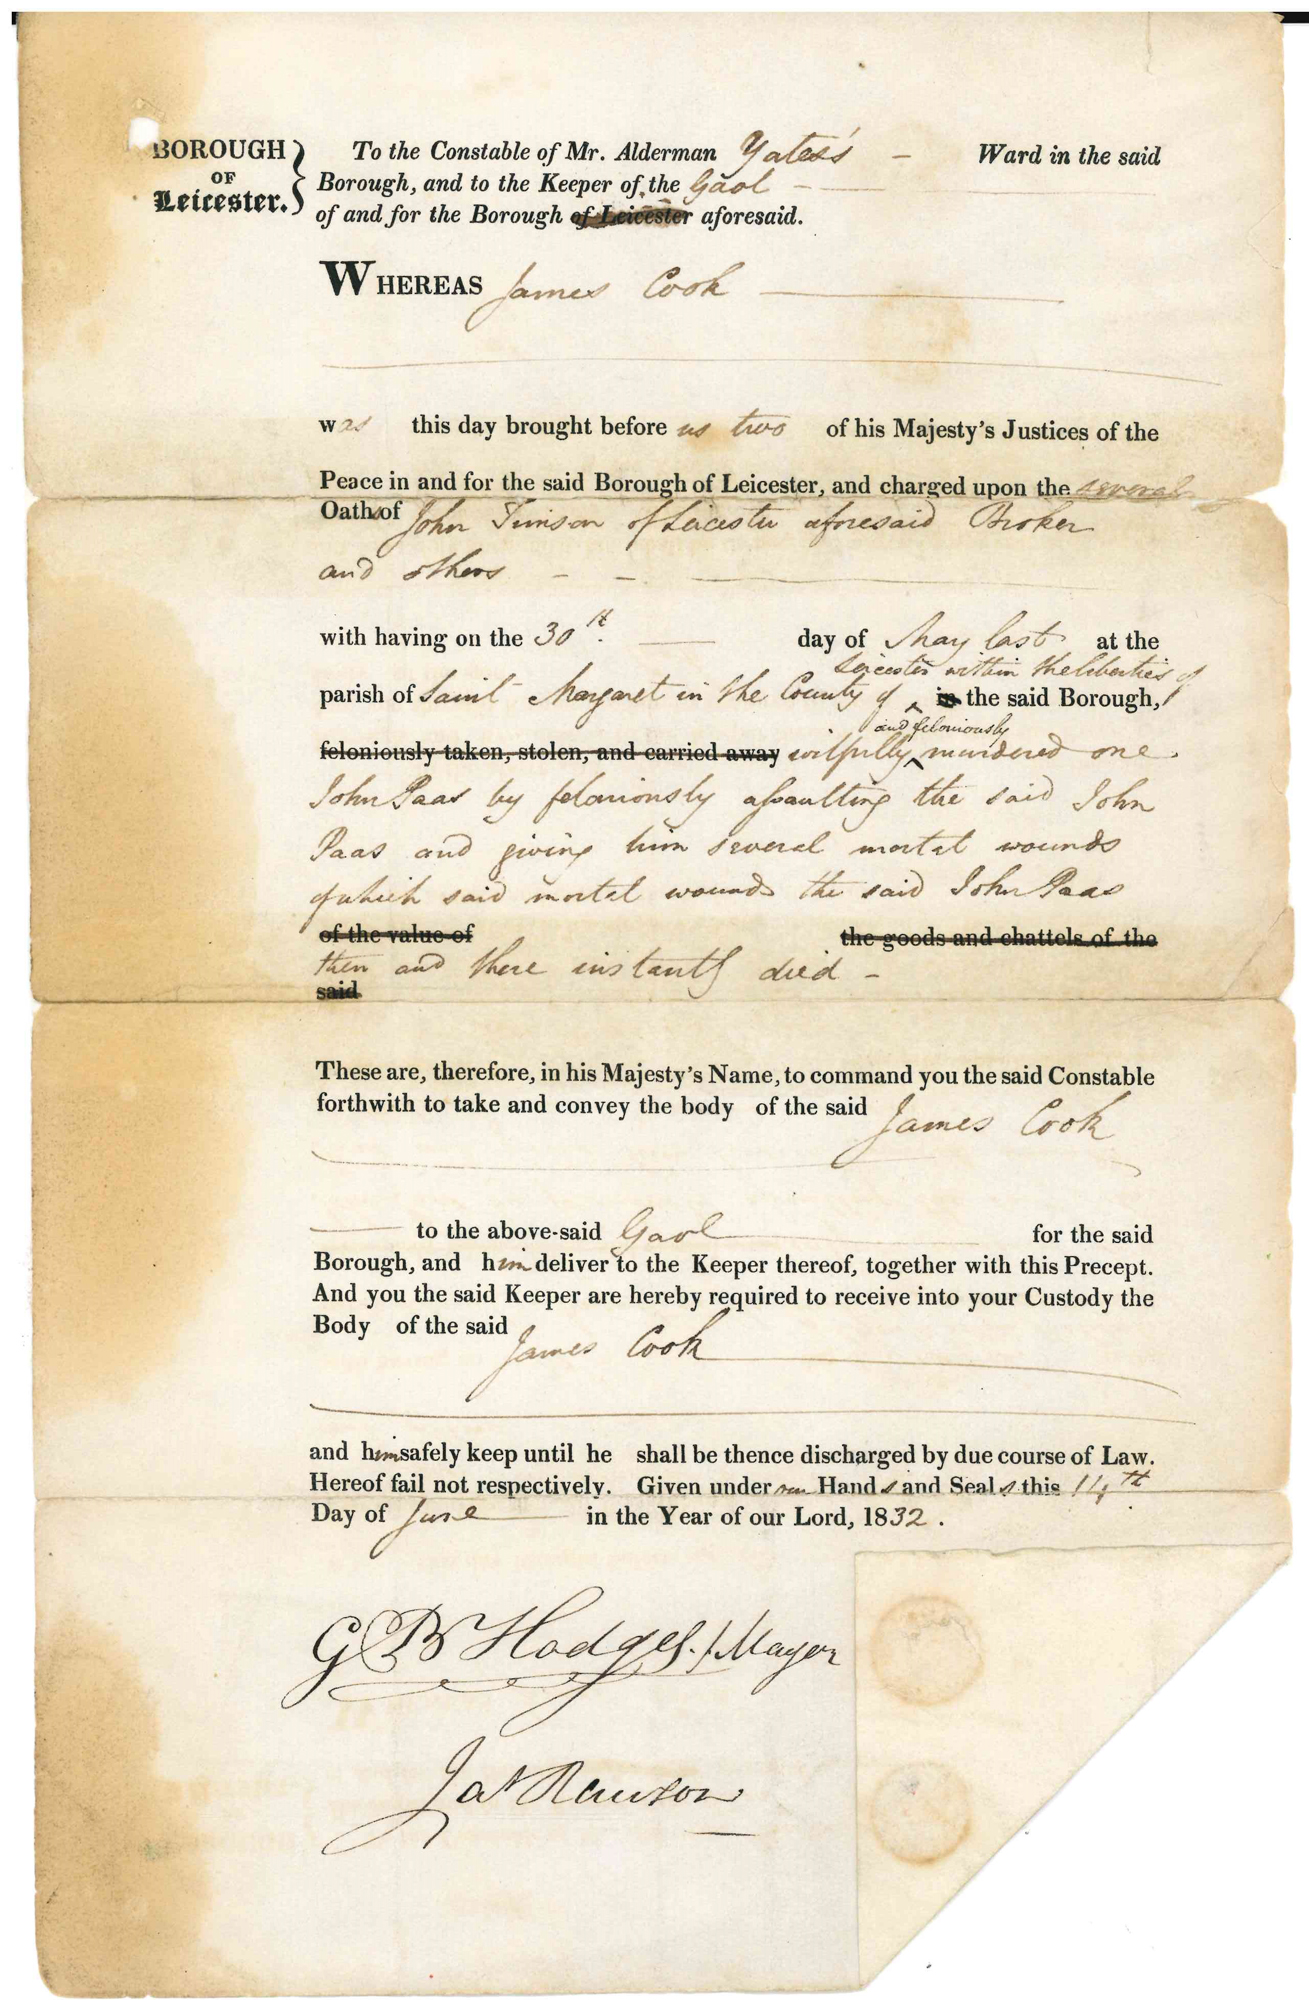 BOROUGH
OF
Leicester.
To the Constable of Mr. Alderman Yates's Ward in the said
Borough, and to the Keeper of the Gaol
of and for the Borough of Leicester aforesaid.
WHEREAS James Cook
was this day brought before us two of his Majesty's Justices of the
Peace in and for the said Borough of Leicester, and charged upon the several
Oaths of John Timson of Leicester aforesaid Broker
and others
with having on the 30th day of May last at the
Leicester within the liberties of
parish of Saint Margaret in the County of in the said Borough,
and feloniously
feloniously taken, stolen, and carried away wilfully murdered one
John Paas by feloniously assaulting the said John
Paas and giving him several mortal wounds
of which said mortal wounds the said John Paas
of the value of the goods and chattels of the
then and there instantly died
said
These are, therefore, in his Majesty's Name, to command you the said Constable
forthwith to take and convey the body of the said James Cook
to the above-said Gaol for the said
Borough, and him deliver to the Keeper thereof, together with this Precept.
And you the said Keeper are hereby required to receive into your Custody the
Body of the said James Cook
and him safely keep until he shall be thence discharged by due course of Law.
Hereof fail not respectively. Given under our Hands and Seals this 14th
Day of June in the Year of our Lord, 1832.
G B Hodges Mayor
Jas Rawson